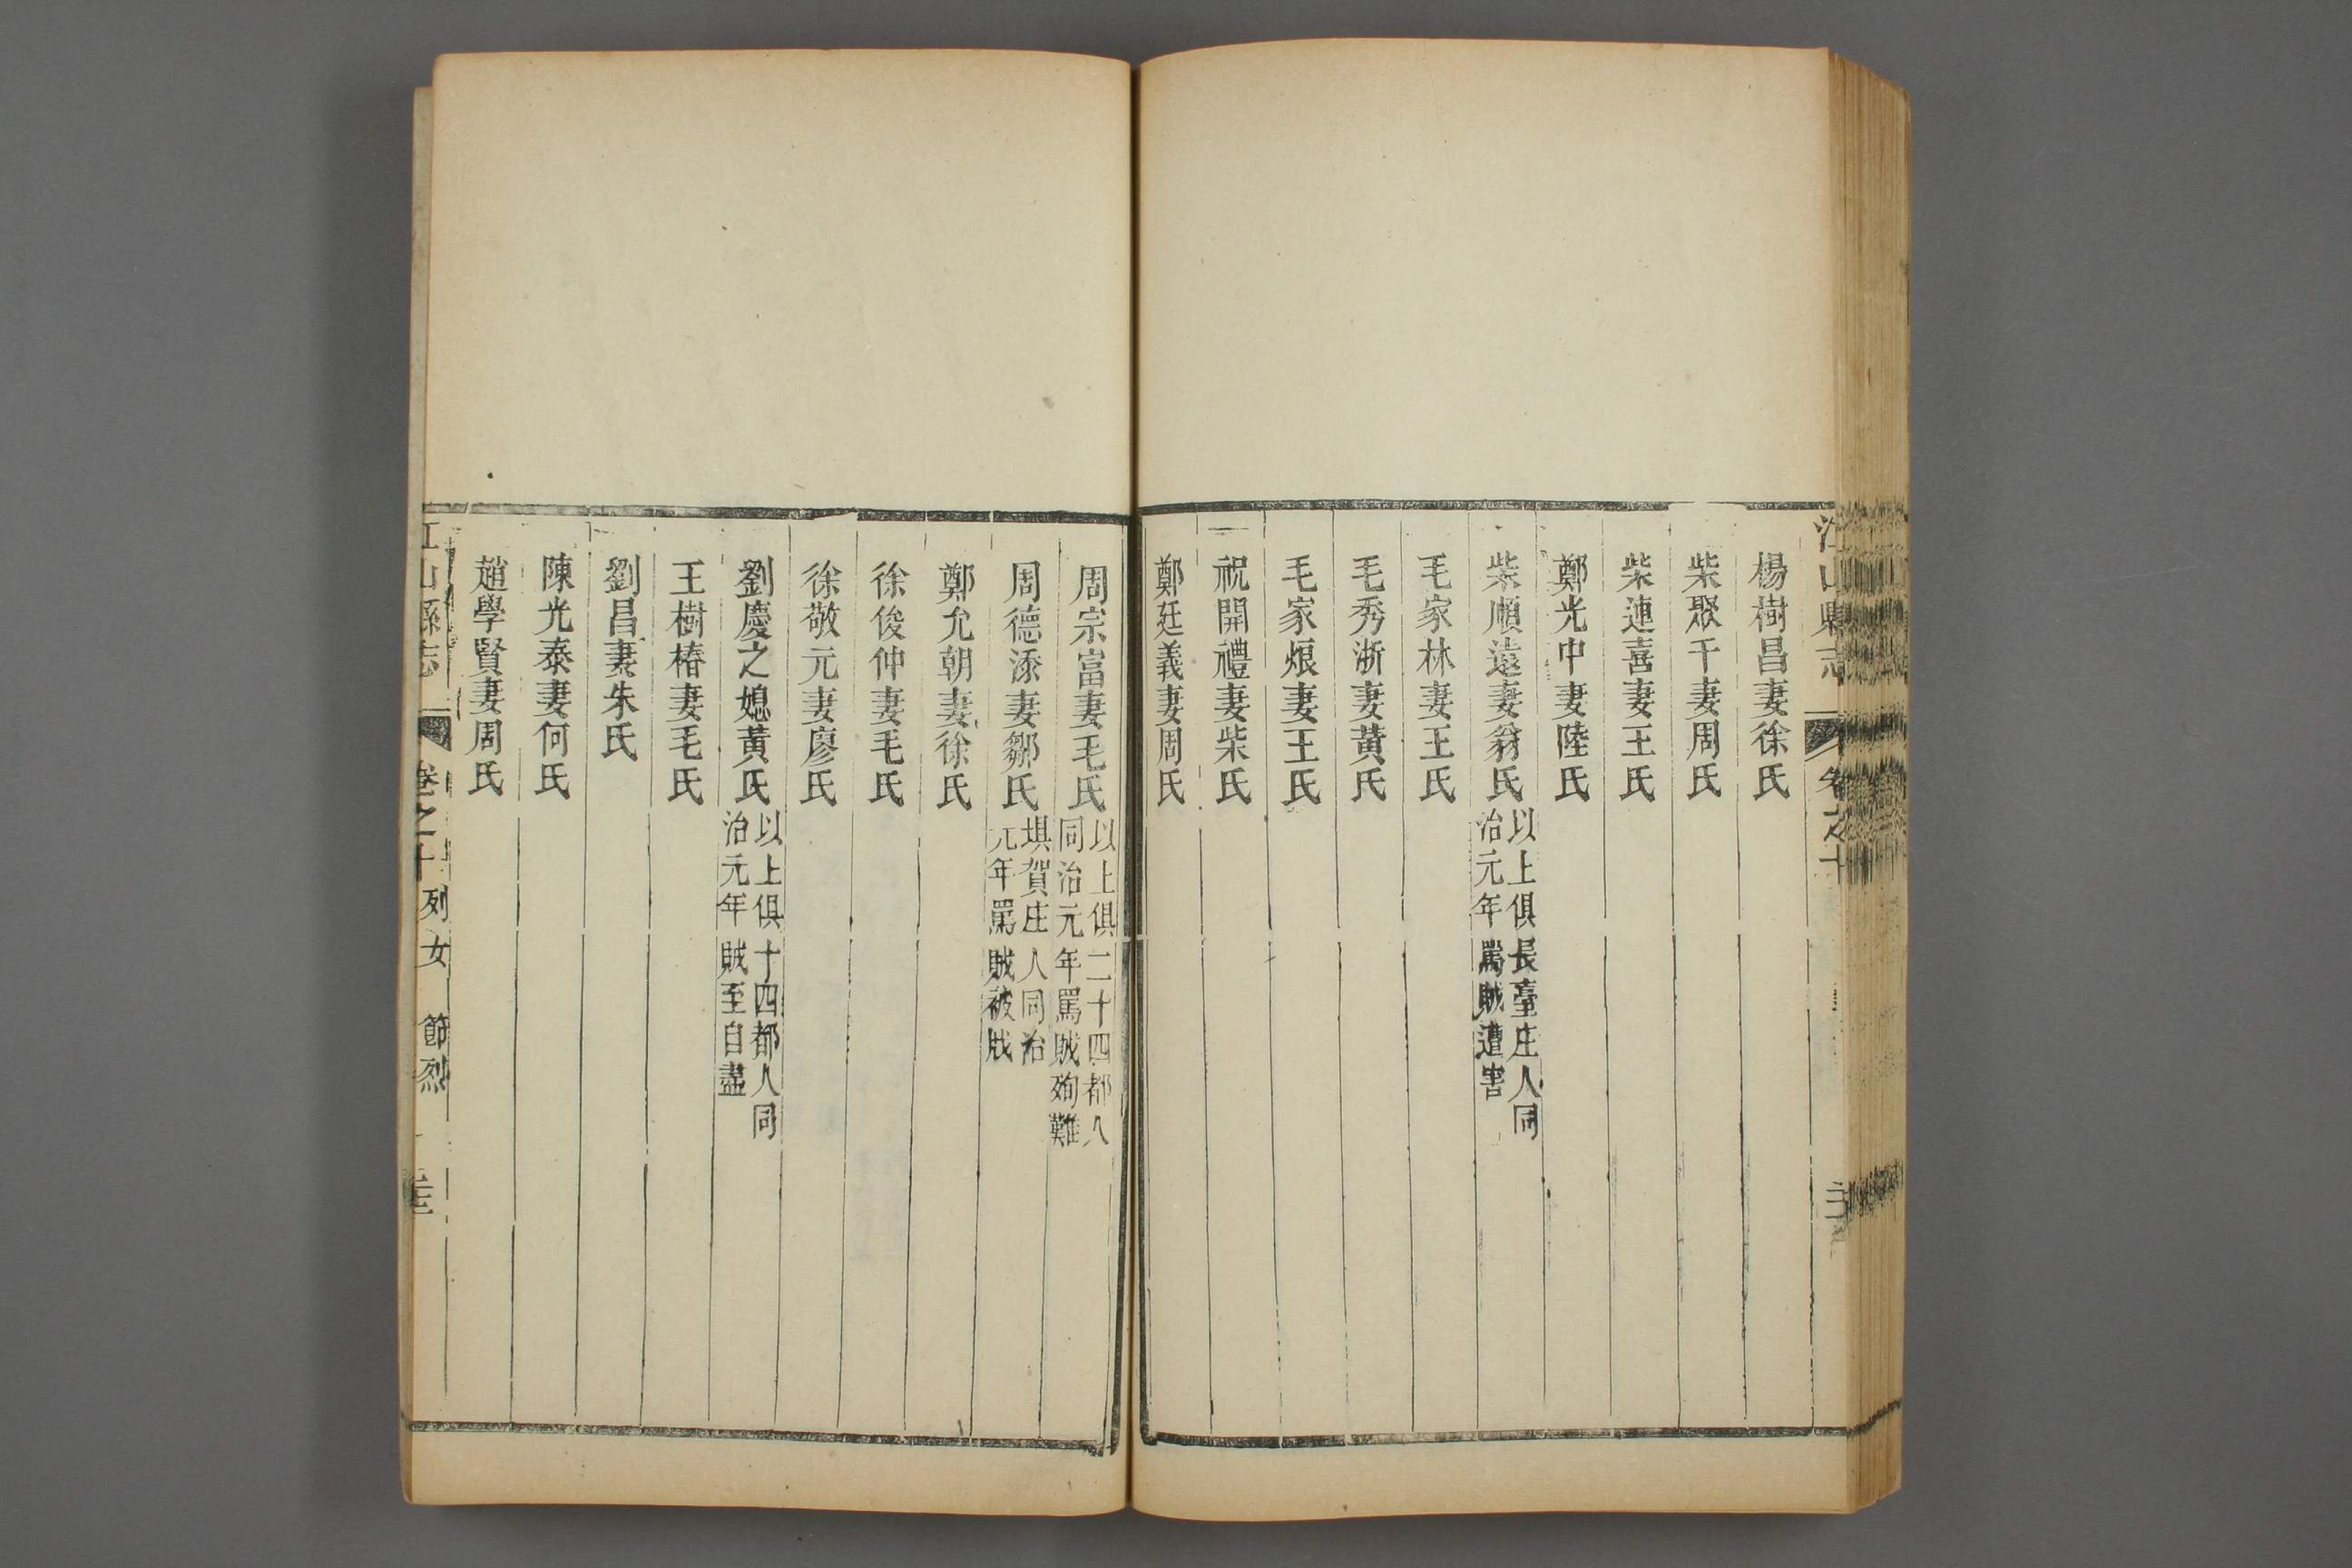 江山縣志
卷之十
楊樹昌妻徐氏
柴聚干妻周氏
柴連喜妻王氏
鄭光中妻陸氏
柴順遠妻翁氏
以上俱長臺庄人同
治元年罵賊遭害
毛家林妻王氏
毛秀浙妻黃氏
毛家烺妻王氏
祝開禮妻柴氏
鄭廷義妻周氏
周宗富妻毛氏
以上俱二十四都人
同治元年罵賊殉難
周德添妻鄒氏
埧賀庄人同治
元年罵賊被戕
鄭允朝妻徐氏
徐俊仲妻毛氏
徐敬元妻廖氏
劉慶之媳黃氏
以上俱十四都人同
治元年賊至自盡
王樹椿妻毛氏
劉昌妻朱氏
陳光泰妻何氏
趙學賢妻周氏
江山縣志
卷之十
列女
節烈